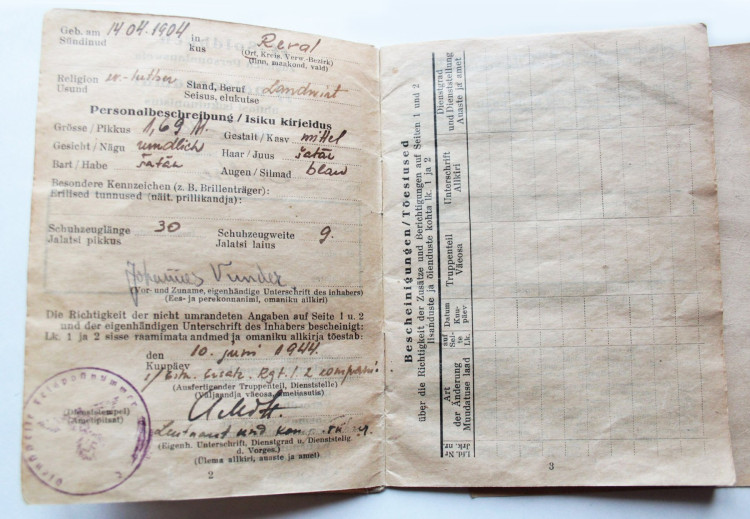 Geb. am 14.04.1904 in Reval
Sündinud kus (Ort, Kreis, Verw.-Bezirk)
(linn, maakond, vald)
Religion ev.-luther Stand, Beruf Landwirt
Usund Seisus, elukutse
Personalbeschreibung / Isiku kirjeldus
Grösse / Pikkus 1,69 M. Gestalt / Kasv mittel
Gesicht / Nägu rundlich Haar / Juus šatän
Bart / Habe šatän Augen / Silmad blau
Besondere Kennzeichen (z. B. Brillenträger):
Erilised tunnused (näit. prillikandja):
Schuhzeuglänge 30 Schuhzeugweite 9.
Jalatsi pikkus Jalatsi laius
Johannes Vunder
(Vor- und Zuname, eigenhändige Unterschrift des Inhabers)
(Ees- ja perekonnanimi, omaniku allkiri)
Die Richtigkeit der nicht umrandeten Angaben auf Seite 1 u. 2
und der eigenhändigen Unterschrift des Inhabers bescheinigt:
Lk. 1 ja 2 sisse raamimata andmed ja omaniku allkirja tõestab:
den 10. juni 1944.
Kuupäev
Ersatz Rgt. 2
(Ausfertigender Truppenteil, Dienststelle)
(Väljaandja väeosa, ametiasutis)
(Dienststempel)
(Ametipitsat)
Leutnant und
(Eigenh. Unterschrift, Dienstgrad u. Dienststellg.
d. Vorges.)
(Ülema allkiri, auaste ja amet)
2
Bescheinigungen / Tõestused
über die Richtigkeit der Zusätze und Berichtigungen auf Seiten 1 und 2
lisanduste ja õienduste kohta lk. 1 ja 2
Lfd. Nr
Jrk. nr.
Art
der Änderung
Mundatuse laad
auf
Sei-
te
Lk.
Datum
Kuu-
päev
Truppenteil
Väeosa
Unterschrift
Allkiri
Dienstgrad
und Dienststellung
Auaste jf amet
3